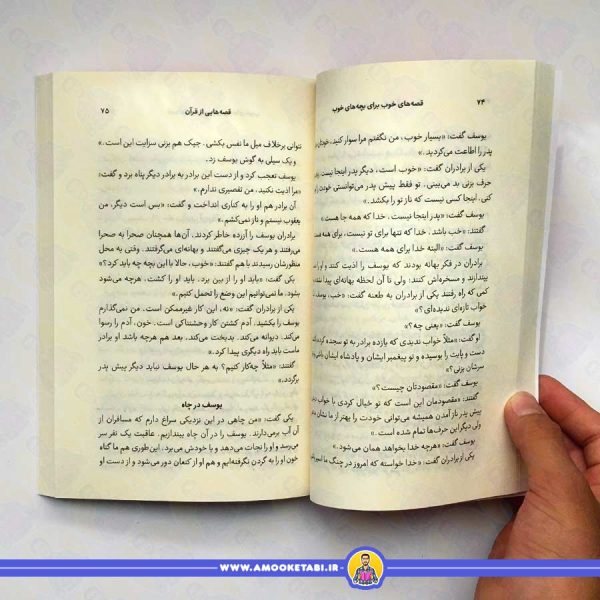 ۷۴ قصه‌های خوب برای بچه‌های خوب
یوسف گفت: «بسیار خوب، من نگفتم مرا سوار کنید، خودتان
پدر را اطاعت می‌کردید.»
یکی از برادران گفت: «خوب است، دیگر پدر اینجا نیست
حرف بزنی بد می‌بینی. تو فقط پیش پدر می‌توانستی خود
کنی. اینجا کسی نیست که ناز تو را بکشد.»
یوسف گفت: «پدر اینجا نیست، خدا که همه جا هست
گفتند: «خب باشد. خدا که تنها برای تو نیست، برای همه
یوسف گفت: «البته خدا برای همه هست.»
برادران در فکر بهانه بودند که یوسف را اذیت کنند و او را
بیندازند و مسخره‌اش کنند؛ ولی تا آن لحظه بهانه‌ای پیدا
کمی که راه رفتند یکی از برادران به طعنه گفت: «خب، یوسف
خواب تازه‌ای ندیده‌ای؟»
یوسف گفت: «یعنی چه؟»
او گفت: «مثلاً خواب ندیدی که یازده برادر به تو سجده کرده‌اند
دست و پایت را بوسیده و تو پیغمبر ایشان و پادشاه ایشان
سرشان بزنی؟»
یوسف گفت: «مقصودتان چیست؟»
گفتند: «مقصودمان این است که تو خیال کردی با خواب
پیش پدر ناز آمدن همیشه می‌توانی خودت را بهتر از ما نشان
ولی دیگر این حرف‌ها تمام شده است.»
یوسف گفت: «هرچه خدا بخواهد همان می‌شود.»
یکی از برادران گفت: «خدا خواسته که امروز در چنگ ما اسیر
قصه‌هایی از قرآن ۷۵
نتوانی برخلاف میل ما نفس بکشی. جیک هم بزنی سزایت این است.»
و یک سیلی به گوش یوسف زد.
یوسف تعجب کرد و از دست این برادر به برادر دیگر پناه برد و گفت:
«مرا اذیت نکنید. من تقصیری ندارم.»
آن برادر هم او را به کناری انداخت و گفت: «بس است دیگر، من
یعقوب نیستم و ناز نمی‌کشم.»
برادران یوسف را آزرده خاطر کردند. آن‌ها همچنان صحرا به صحرا
می‌رفتند و هر یک چیزی می‌گفتند و بهانه‌ای می‌گرفتند. وقتی به محل
منظورشان رسیدند با هم گفتند: «خوب، حالا با این بچه چه باید کرد؟»
یکی گفت: «باید او را از بین برد. باید او را کشت، هرچه می‌شود
بشود. ما نمی‌توانیم این وضع را تحمل کنیم.»
یکی از برادران گفت: «نه، این کار غیرممکن است. من نمی‌گذارم
یوسف را بکشید. آدم کشتن کار وحشتناکی است. خون، آدم را رسوا
می‌کند. دیوانه می‌کند. بدبخت می‌کند. بعد هم هرچه باشد او برادر
ماست باید راه دیگری پیدا کرد.»
گفتند: «مثلاً چه‌کار کنیم؟ به هر حال یوسف نباید دیگر پیش پدر
برگردد.»
یوسف در چاه
یکی گفت: «من چاهی در این نزدیکی سراغ دارم که مسافران از
آن آب برمی‌دارند. یوسف را در آن چاه بیندازیم. عاقبت یک نفر سر
می‌رسد و او را نجات می‌دهد و با خودش می‌برد. این‌طوری هم ما گناه
خون او را به گردن نگرفته‌ایم و هم او از کنعان دور می‌شود و از دست او
WWW.AMOOKETABI.IR